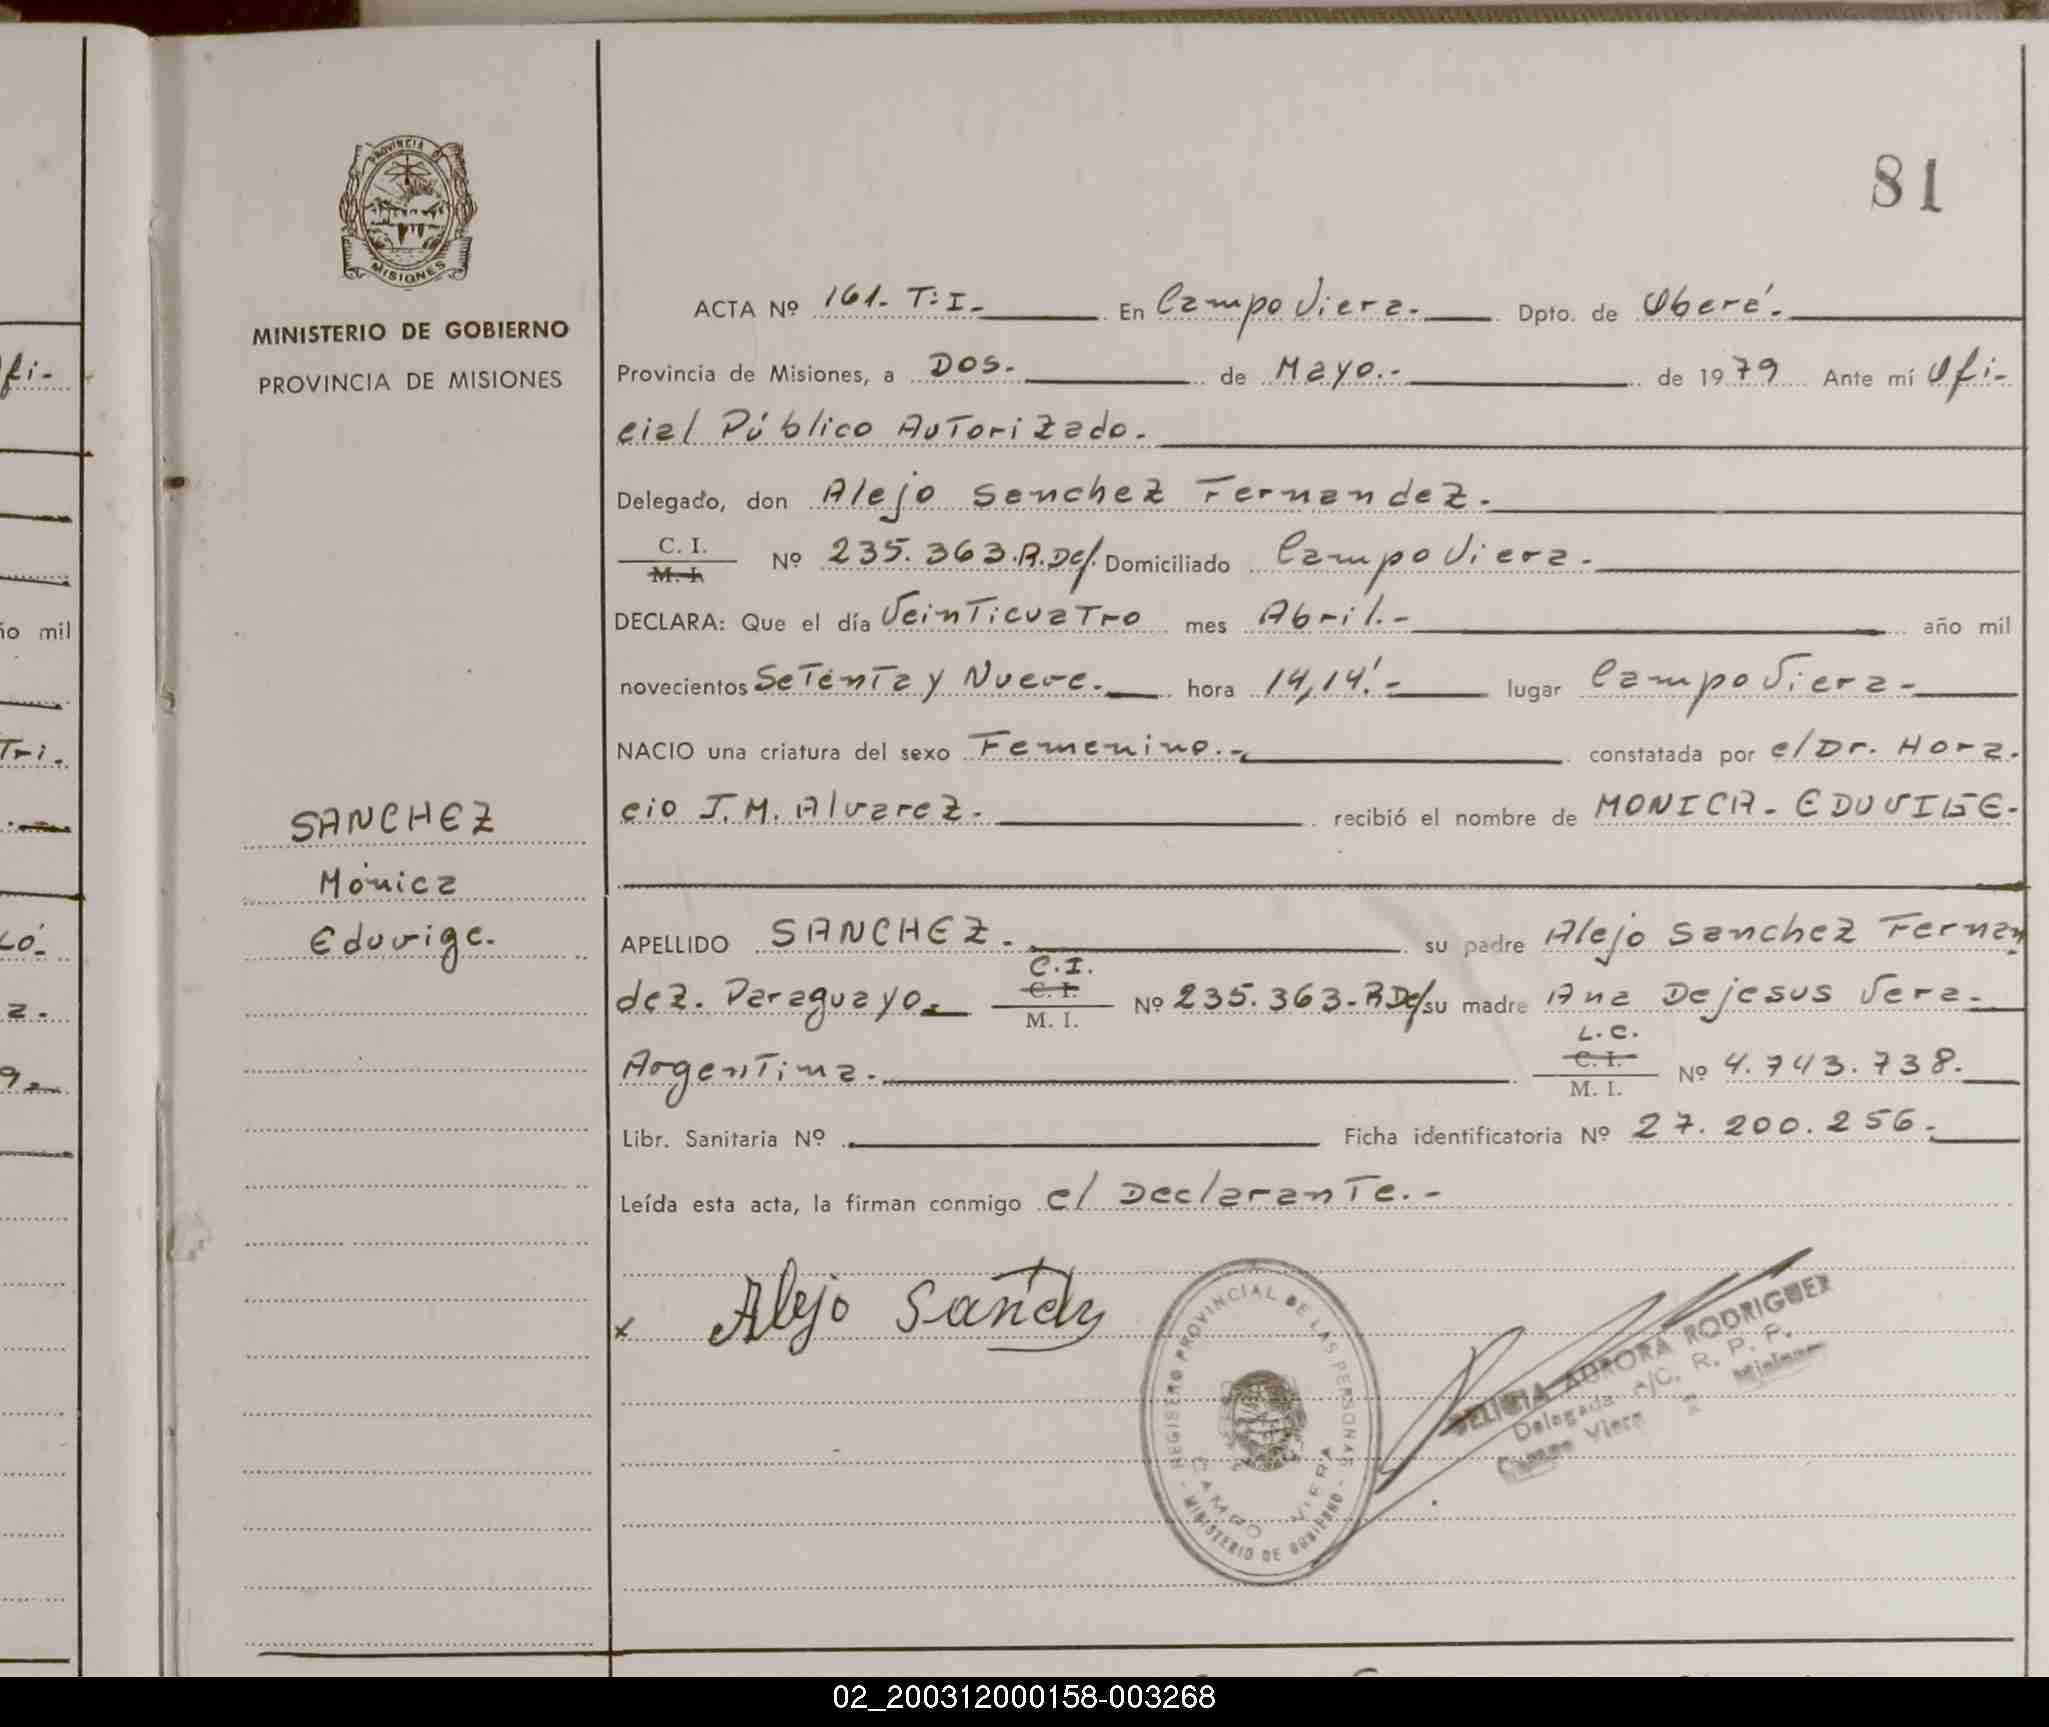 81
PROVINCIA DE
MISIONES
MINISTERIO DE GOBIERNO
PROVINCIA DE MISIONES
SANCHEZ
Mónica
Eduvige.
ACTA Nº 161. T:I.- En Campo Viera.- Dpto. de Oberá.-
Provincia de Misiones, a Dos.- de Mayo.- de 1979 Ante mí Ofi-
cial Público Autorizado.-
Delegado, don Alejo Sanchez Fernandez.-
C. I.
M. I. Nº 235.363.R.Def. Domiciliado Campo Viera.-
DECLARA: Que el día Veinticuatro mes Abril.- año mil
novecientos Setenta y Nueve.- hora 14,14'.- lugar Campo Viera.-
NACIO una criatura del sexo Femenino.- constatada por el Dr. Hora-
cio J.M. Alvarez.- recibió el nombre de MONICA- EDUVIGE-
APELLIDO SANCHEZ.- su padre Alejo Sanchez Fernan
C.I.
dez. Paraguayo.- C. I. M. I. Nº 235.363-R Def su madre Ana Dejesus Vera.-
L.C.
Argentina.- C. I. M. I. Nº 4.743.738.-
Libr. Sanitaria Nº Ficha identificatoria Nº 27.200.256.-
Leída esta acta, la firman conmigo el Declarante.-
x Alejo Sanch
REGISTRO PROVINCIAL DE LAS PERSONAS
CAMPO VIERA
- MINISTERIO DE GOBIERNO -
DELICIA AURORA RODRIGUEZ
Delegada A/C. R. P. P.
Campo Viera Misiones
ofi-
ño mil
Tri.
02_200312000158-003268